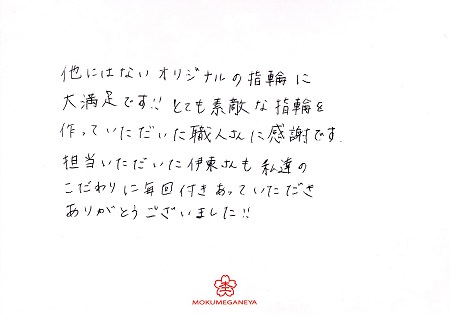 他にはないオリジナルの指輪に
大満足です!! とても素敵な指輪を
作っていただいた職人さんに感謝です.
担当いただいた伊東さんも私達の
こだわりに毎回付きあっていただき
ありがとうございました!!
MOKUMEGANEYA